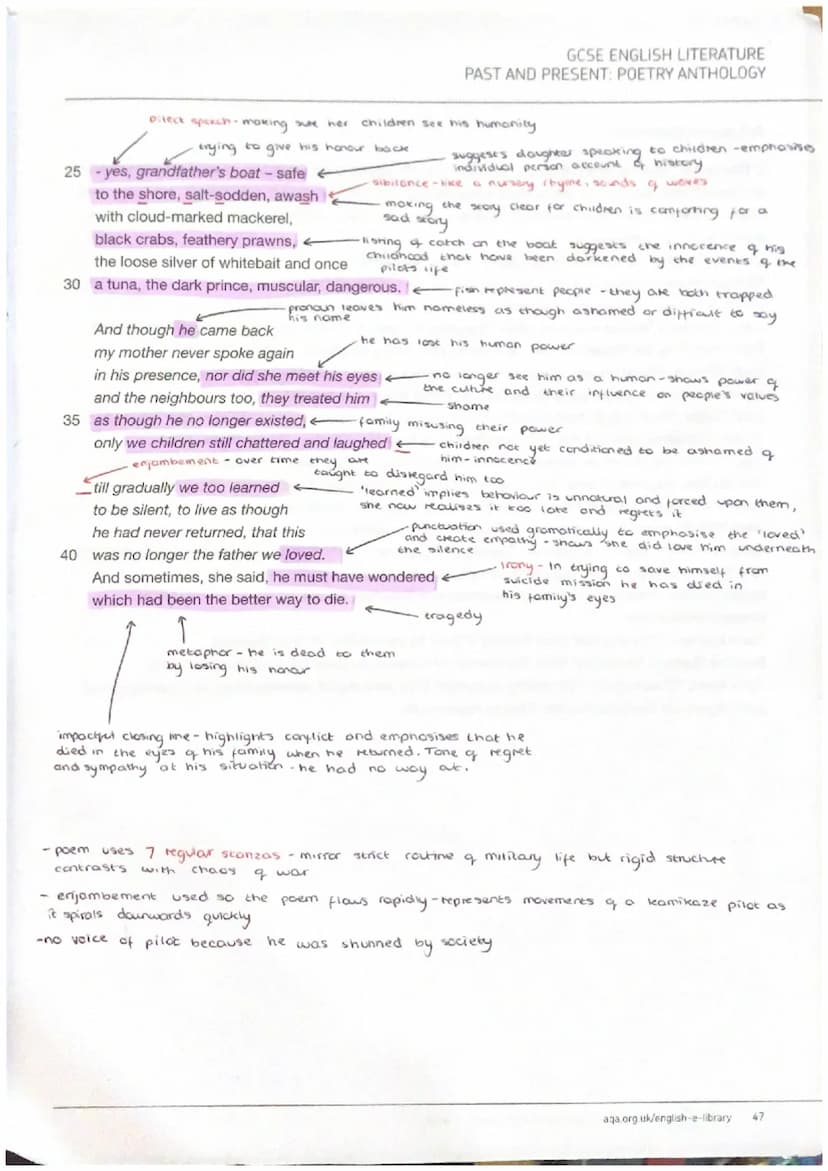 GCSE ENGLISH LITERATURE
PAST AND PRESENT: POETRY ANTHOLOGY
Direct speech - making sure her children see his humanity
trying to give his honour back
suggests daughter speaking to children - emphasises
individual person account of history
25 - yes, grandfather's boat – safe
sibilance - like a nursery rhyme, sounds of waves
to the shore, salt-sodden, awash
making the story clear for children is comforting for a
sad story
with cloud-marked mackerel,
black crabs, feathery prawns,
listing of catch on the boat suggests the innocence of his
childhood that have been darkened by the events of the
pilots life
the loose silver of whitebait and once
30 a tuna, the dark prince, muscular, dangerous.
fish represent people - they are both trapped
pronoun leaves him nameless as though ashamed or difficult to say
his name
And though he came back
he has lost his human power
my mother never spoke again
in his presence, nor did she meet his eyes
no longer see him as a human - shows power of
the culture and their influence on people's values
and the neighbours too, they treated him
shame
35 as though he no longer existed,
family misusing their power
only we children still chattered and laughed
children not yet conditioned to be ashamed of
him - innocence
enjambement - over time they are
taught to disregard him too
till gradually we too learned
'learned' implies behaviour is unnatural and forced upon them,
she now realises it too late and regrets it
to be silent, to live as though
he had never returned, that this
punctuation used gramatically to emphasise the 'loved'
and create empathy - shows she did love him underneath
the silence
40 was no longer the father we loved.
And sometimes, she said, he must have wondered
Irony - In trying to save himself from
suicide mission he has died in
his family's eyes
which had been the better way to die.
tragedy
metaphor - he is dead to them
by losing his honour
impactful closing line - highlights conflict and emphasises that he
died in the eyes of his family when he returned. Tone of regret
and sympathy at his situation - he had no way out.
- poem uses 7 regular stanzas - mirror strict routine of military life but rigid structure
contrasts with chaos of war
- enjambement used so the poem flows rapidly - represents movements of a kamikaze pilot as
it spirals downwards quickly
- no voice of pilot because he was shunned by society
aqa.org.uk/english-e-library 47